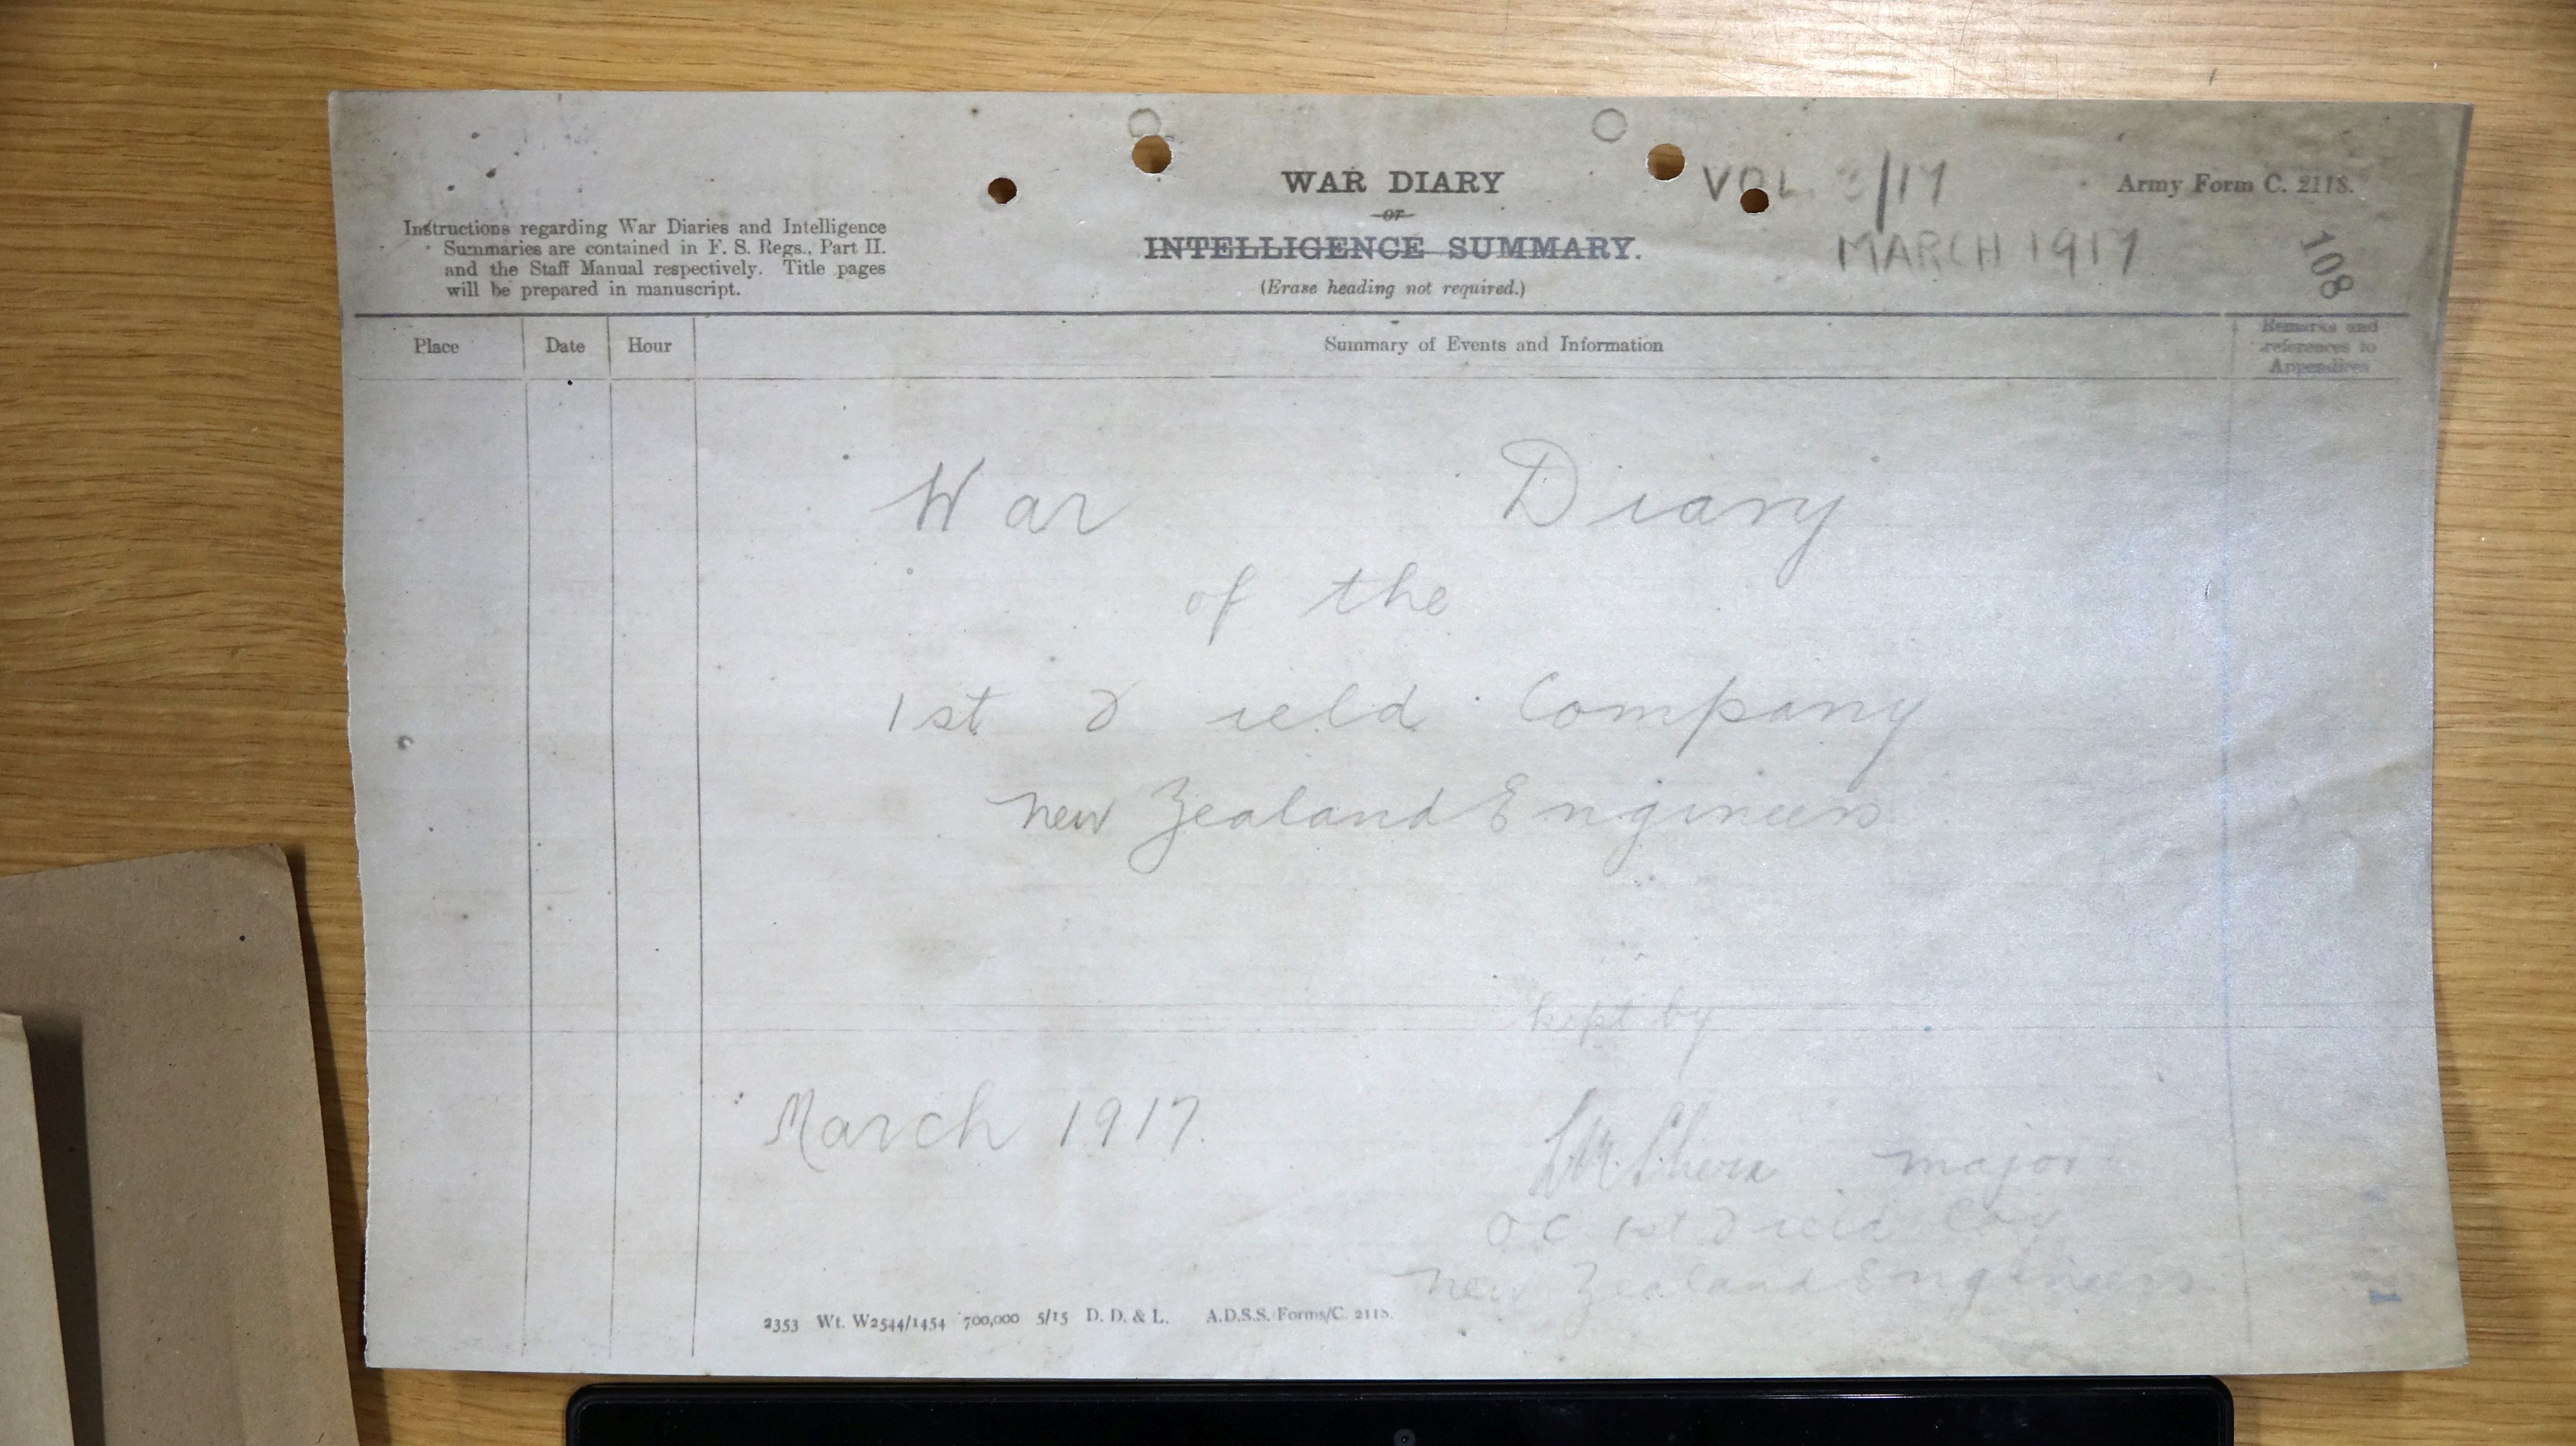 WAR DIARY
or
INTELLIGENCE SUMMARY.
(Erase heading not required.)
VOL. 3/17
MARCH 1917
Army Form C. 2118.
108
Instructions regarding War Diaries and Intelligence
Summaries are contained in F. S. Regs., Part II.
and the Staff Manual respectively. Title pages
will be prepared in manuscript.
Place Date Hour Summary of Events and Information Remarks and
references to
Appendices
War Diary
of the
1st Field Company
New Zealand Engineers
kept by
March 1917.
Major
OC 1st Field Coy
New Zealand Engineers
2353 Wt. W2544/1454 700,000 5/15 D. D. & L. A.D.S.S./Forms/C. 2118.